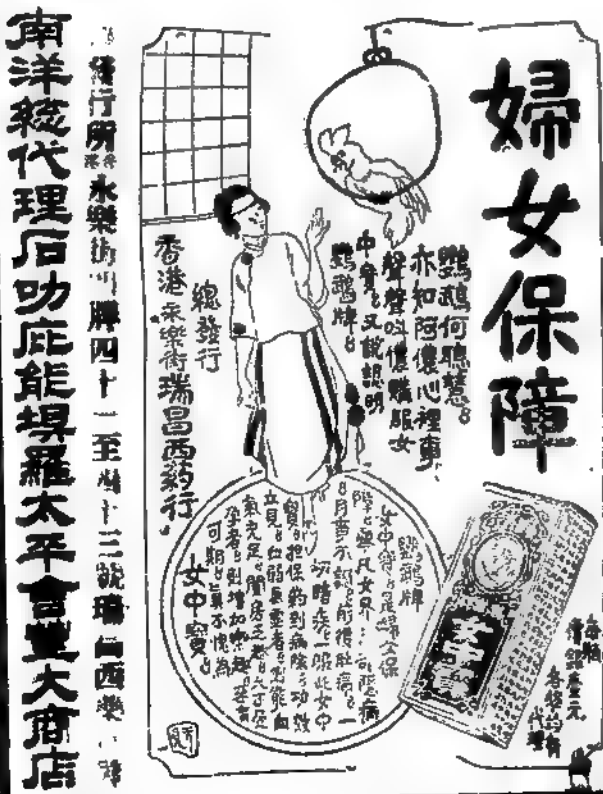 婦女保障
鸚鵡何聰慧。
亦知阿儂心裡事、
聲聲叫儂購服女
中寶。又說認明
鸚鵡牌。
總發行
香港永樂街瑞昌西药行。
鸚鵡牌
女中寶。是婦女保
障。療凡女界
月寶不調。前後肚痛。一
切暗疾。一服此女中
寶。担保葯到病除。功效
立見。
氣充足。閨房之
孕者。則增加樂趣。
可期。真不愧為
女中寶。
女中寶
每瓶
價銀壹元
各埠均有
代理
發行所香港永樂街門牌四十一至四十三號瑞昌西藥行
南洋總代理石叻庇能埧羅太平合豐大商店